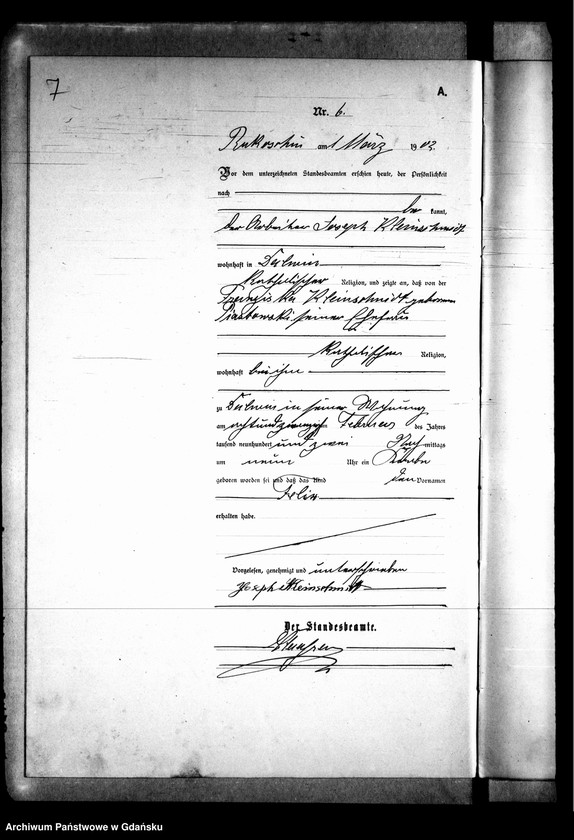 7
A.
Nr. 6.
Rukoschin am 1 März 1902.
Vor dem unterzeichneten Standesbeamten erschien heute, der Persönlichkeit
nach
be kannt,
der Arbeiter Joseph Kleinschmidt
wohnhaft in
katholischer Religion, und zeigte an, daß von der
Franziska Kleinschmidt geborenen
seiner Ehefrau
katholischer Religion,
wohnhaft bei ihm
zu in seiner Wohnung
am achtundzwanzigsten Februar des Jahres
tausend neunhundert und zwei Nach mittags
um neun Uhr ein Knabe
geboren worden sei und daß das Kind den Vornamen
Felix
erhalten habe.
Vorgelesen, genehmigt und unterschrieben
Joseph Kleinschmidt
Der Standesbeamte.
Archiwum Państwowe w Gdańsku